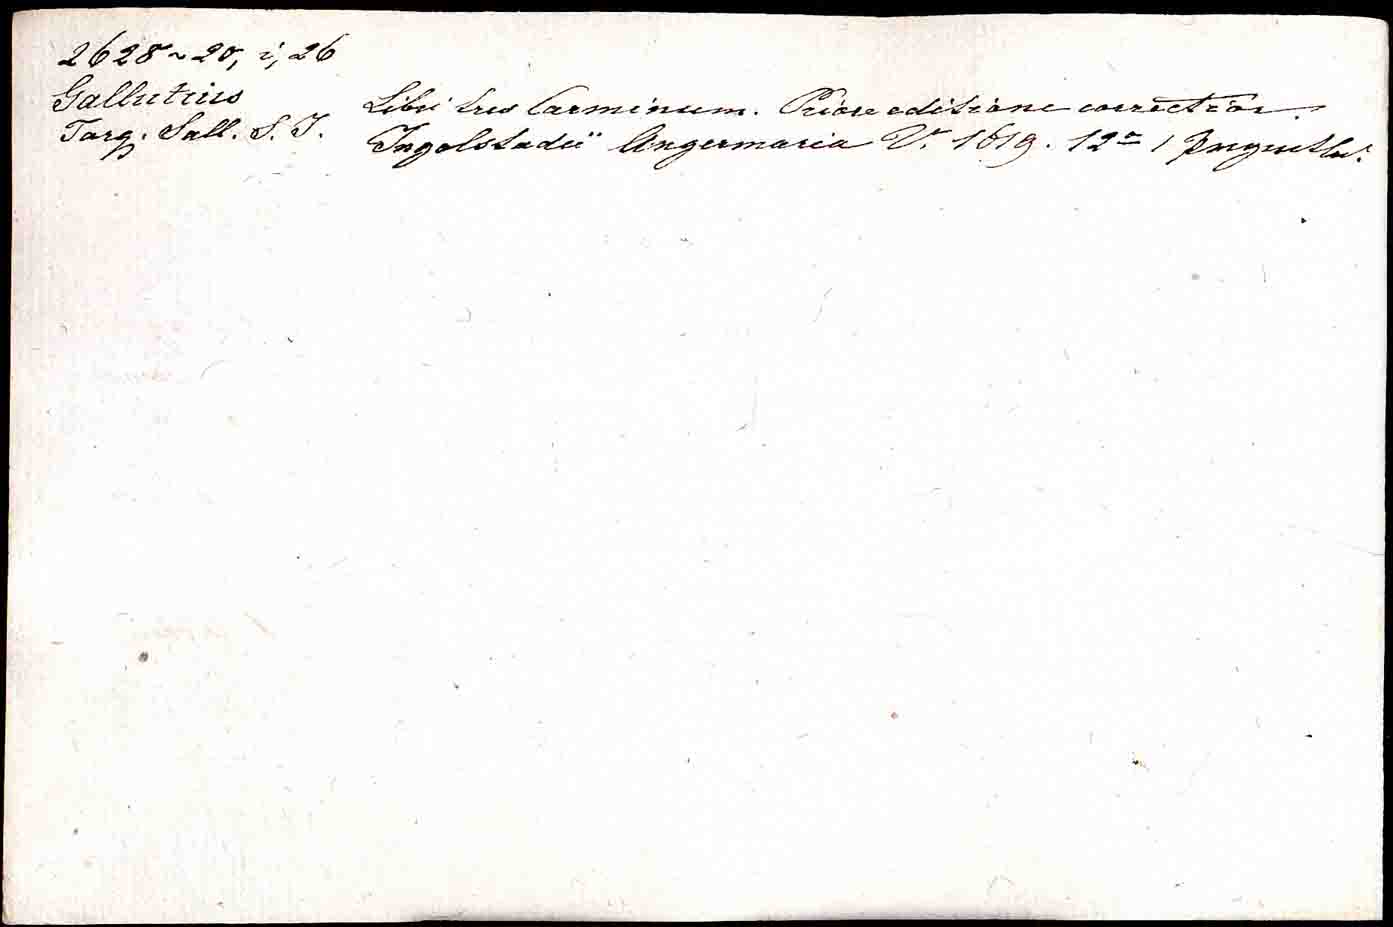 2628 ~ 20, i, 26
Gallutius Libri tres Carminum. Priore editione correctior.
Tarq. Gall. S. J. Ingolstadii Angermaria V. 1619. 12°